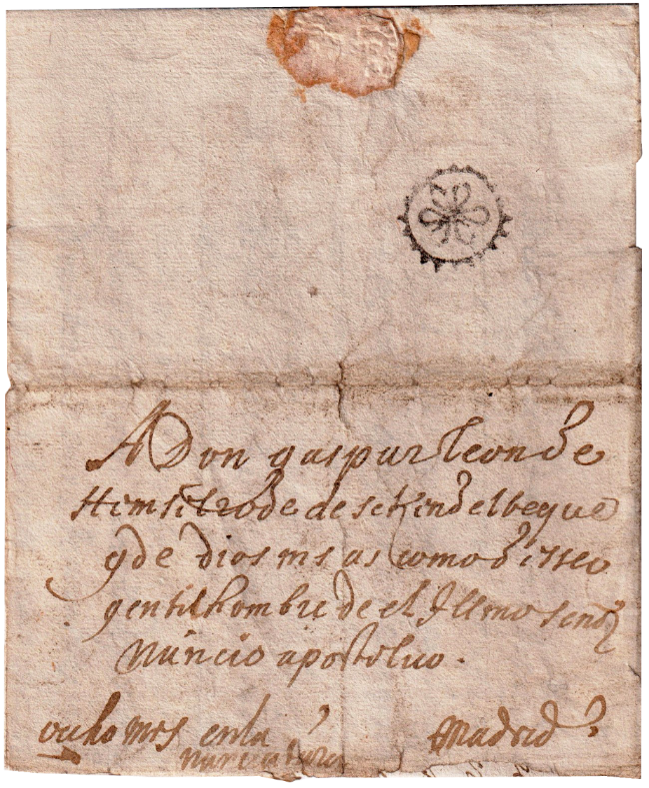 A Don gaspar leon de
de schindelbeque
q de dios ms as como deseo
gentilhombre de el Illmo señor
Nuncio apostolico.
ocho mrs en la Madrid
nunciatura